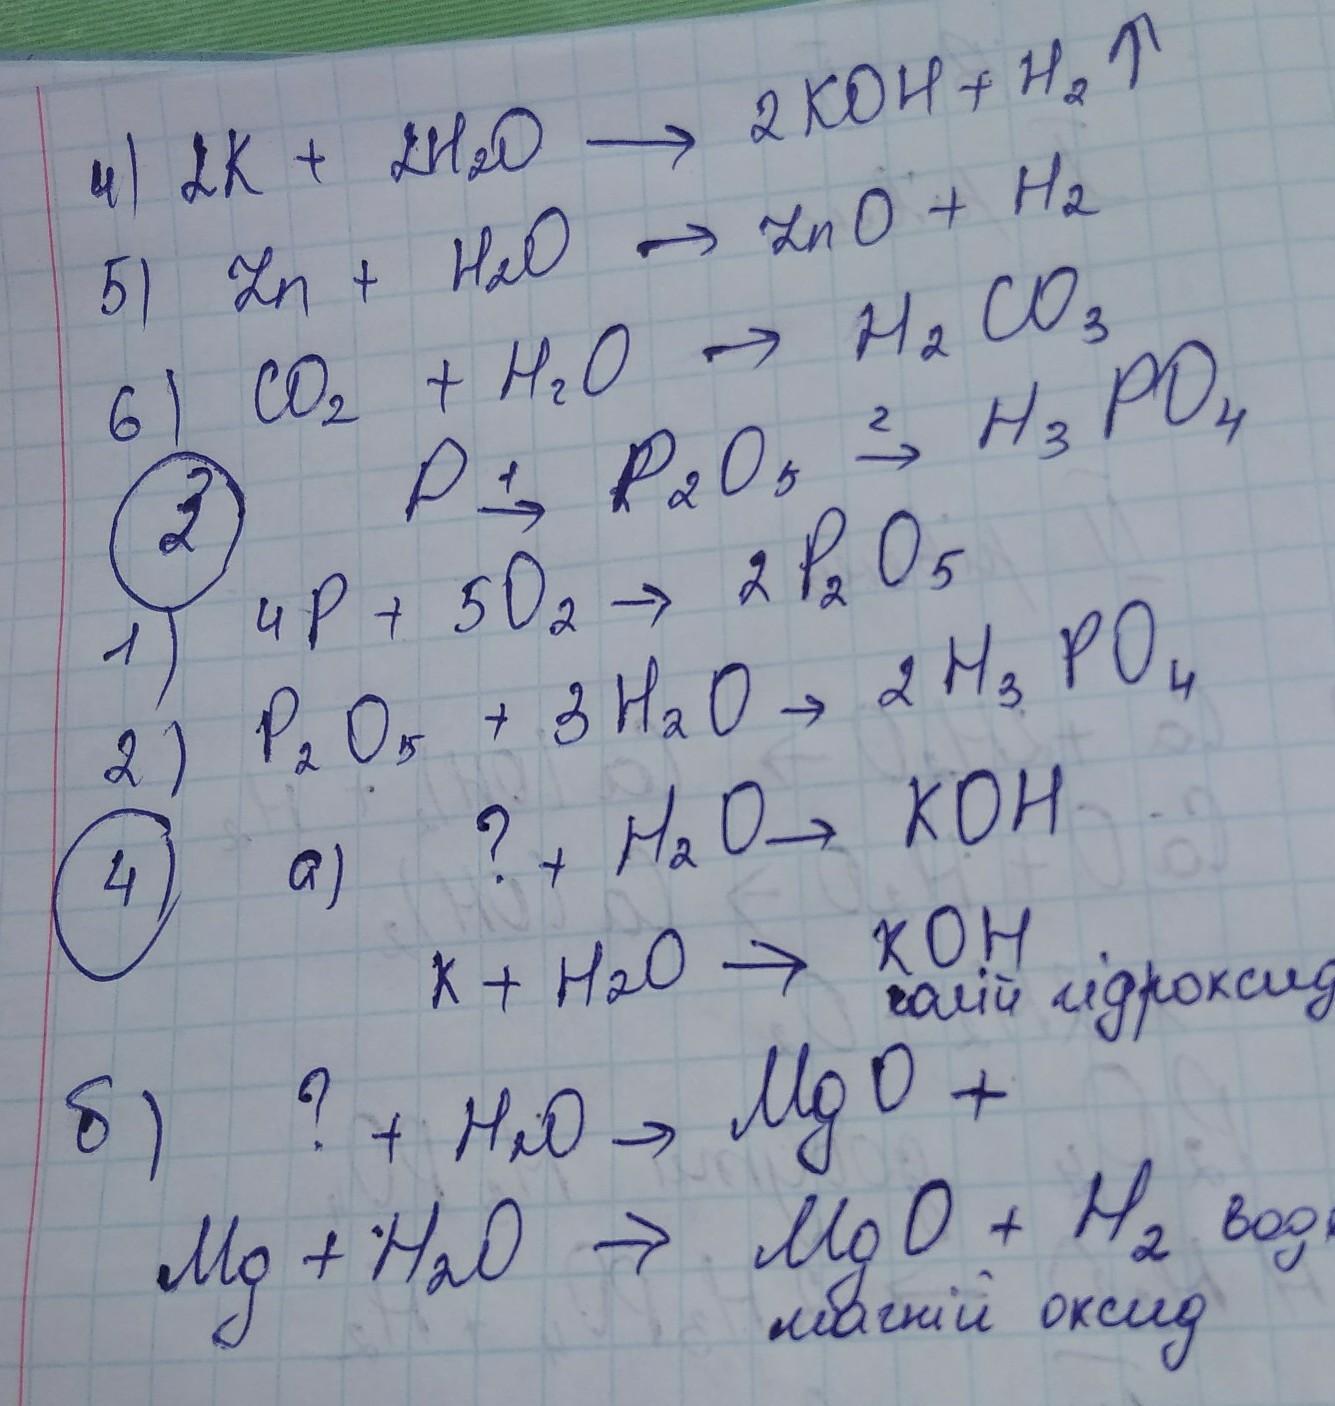 4) 2K + 2H₂O → 2KOH + H₂ ↑
5) Zn + H₂O → ZnO + H₂
6) CO₂ + H₂O → H₂CO₃
3 P →¹ P₂O₅ →² H₃PO₄
1) 4P + 5O₂ → 2P₂O₅
2) P₂O₅ + 3H₂O → 2H₃PO₄
4 а) ? + H₂O → KOH
K + H₂O → KOH
калій гідроксид
б) ? + H₂O → MgO +
Mg + H₂O → MgO + H₂
магній оксид